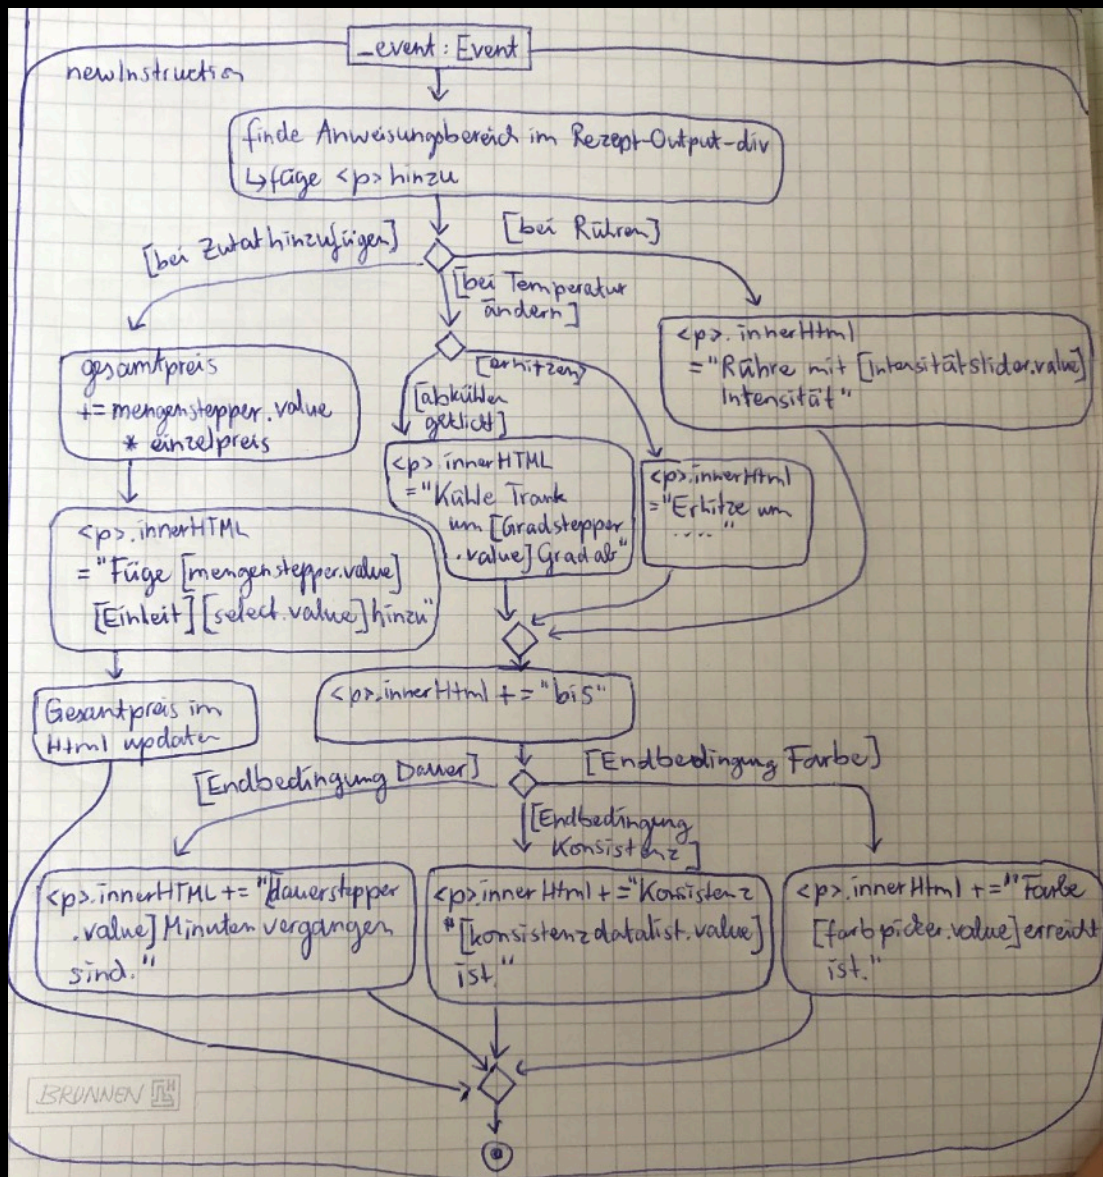 _event: Event
newInstruction
finde Anweisungsbereich im Rezept-Output-div
↳ füge <p> hinzu
[bei Zutat hinzufügen]
[bei Rühren]
[bei Temperatur
ändern]
gesamtpreis
+= mengenstepper.value
* einzelpreis
[erhitzen]
[abkühlen
gecklickt]
<p>.innerHtml
="Rühre mit [Intensitätslider.value]
Intensität"
<p>.innerHTML
="Kühle Trank
um [Gradstepper
.value] Grad ab"
<p>.innerHtml
="Erhitze um
...."
<p>.innerHTML
= "Füge [mengenstepper.value]
[Einheit] [select.value] hinzu"
Gesamtpreis im
Html updaten
<p>.innerHtml += "bis"
[Endbedingung Dauer]
[Endbedingung Farbe]
[Endbedingung
Konsistenz]
<p>.innerHTML += "[dauerstepper
.value] Minuten vergangen
sind."
<p>.innerHtml += "Konsistenz
"[konsistenzdatalist.value]
ist."
<p>.innerHtml += "Farbe
[farbpicker.value] erreicht
ist."
BRUNNEN